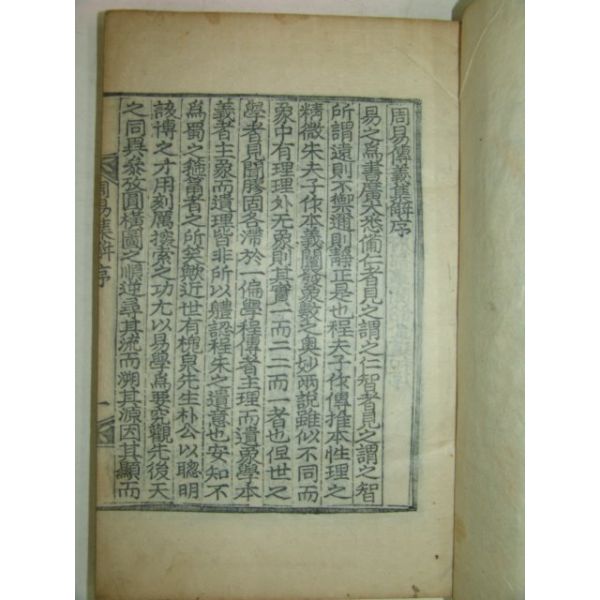 周易傳義集解序
易之爲書廣大悉備仁者見之謂之仁智者見之謂之智
所謂遠則不禦邇則靜正是也程夫子作傳推本性理之
精微朱夫子作本義闡發象數之奧妙兩說雖似不同而
象中有理理外无象則其實一而二二而一者也但世之
學者見聞膠固各滯於一偏學程傳者主理而遺象學本
義者主象而遺理皆非所以體認程朱之遺意也安知不
爲蜀之箍篅者之所笑歟近世有 泉先生朴公以聰明
該博之才用刻厲探索之功尤以易學爲要究觀先後天
之同異參攷圓橫圖之順逆尋其流而溯其源因其顯而
周易集解 序 一